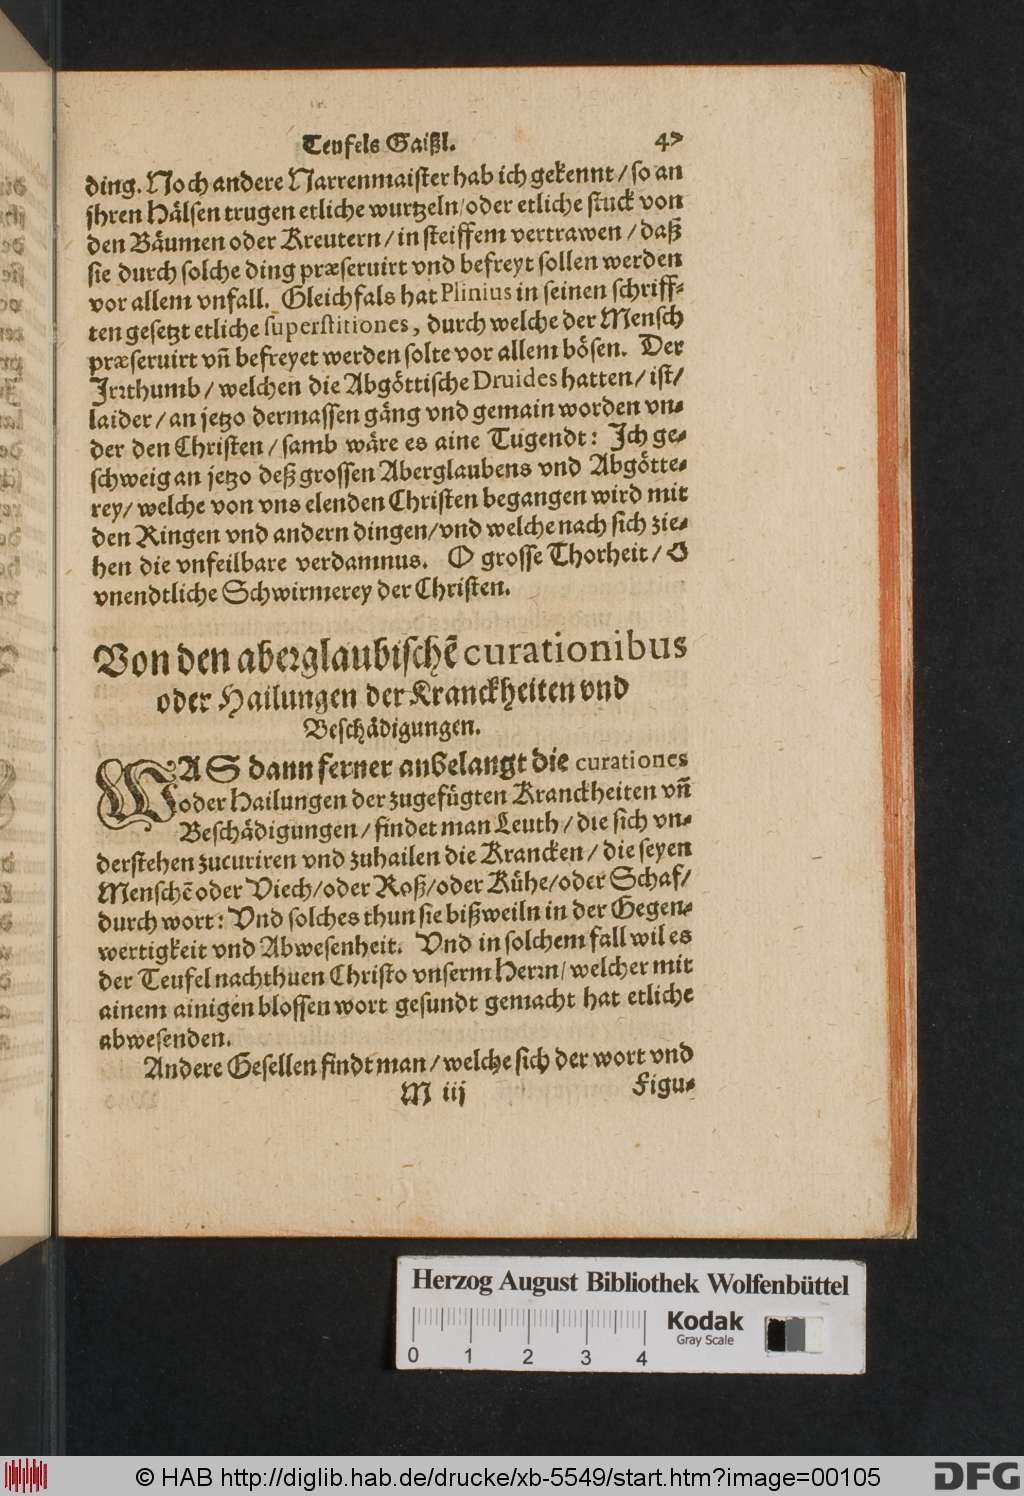 Teufels Gaißl. 47
ding. Noch andere Narrenmaister hab ich gekennt / so an
jhren Hälsen trugen etliche wurtzeln / oder etliche stuck von
den Bäumen oder Kreutern / in steiffem vertrawen / daß
sie durch solche ding præseruirt vnd befreyt sollen werden
vor allem vnfall. Gleichfals hat Plinius in seinen schriff-
ten gesetzt etliche superstitiones, durch welche der Mensch
præseruirt vñ befreyet werden solte vor allem bösen. Der
Jrrthumb / welchen die Abgöttische Druides hatten / ist /
laider / an jetzo dermassen gäng vnd gemain worden vn-
der den Christen / samb wäre es aine Tugendt: Jch ge-
schweig an jetzo deß grossen Aberglaubens vnd Abgötte-
rey / welche von vns elenden Christen begangen wird mit
den Ringen vnd andern dingen / vnd welche nach sich zie-
hen die vnfeilbare verdamnus. O grosse Thorheit / O
vnendtliche Schwirmerey der Christen.
Von den aberglaubischẽ curationibus
oder Hailungen der Kranckheiten vnd
Beschädigungen.
WAS dann ferner anbelangt die curationes
oder Hailungen der zugefügten Kranckheiten vñ
Beschädigungen / findet man Leuth / die sich vn-
derstehen zucuriren vnd zuhailen die Krancken / die seyen
Menschẽ oder Viech / oder Roß / oder Kühe / oder Schaf /
durch wort: Vnd solches thun sie bißweiln in der Gegen-
wertigkeit vnd Abwesenheit. Vnd in solchem fall wil es
der Teufel nachthuen Christo vnserm Herrn / welcher mit
ainem ainigen blossen wort gesundt gemacht hat etliche
abwesenden.
Andere Gesellen findt man / welche sich der wort vnd
M iij Figu-
Herzog August Bibliothek Wolfenbüttel
Kodak
Gray Scale
0 1 2 3 4
© HAB http://diglib.hab.de/drucke/xb-5549/start.htm?image=00105
DFG